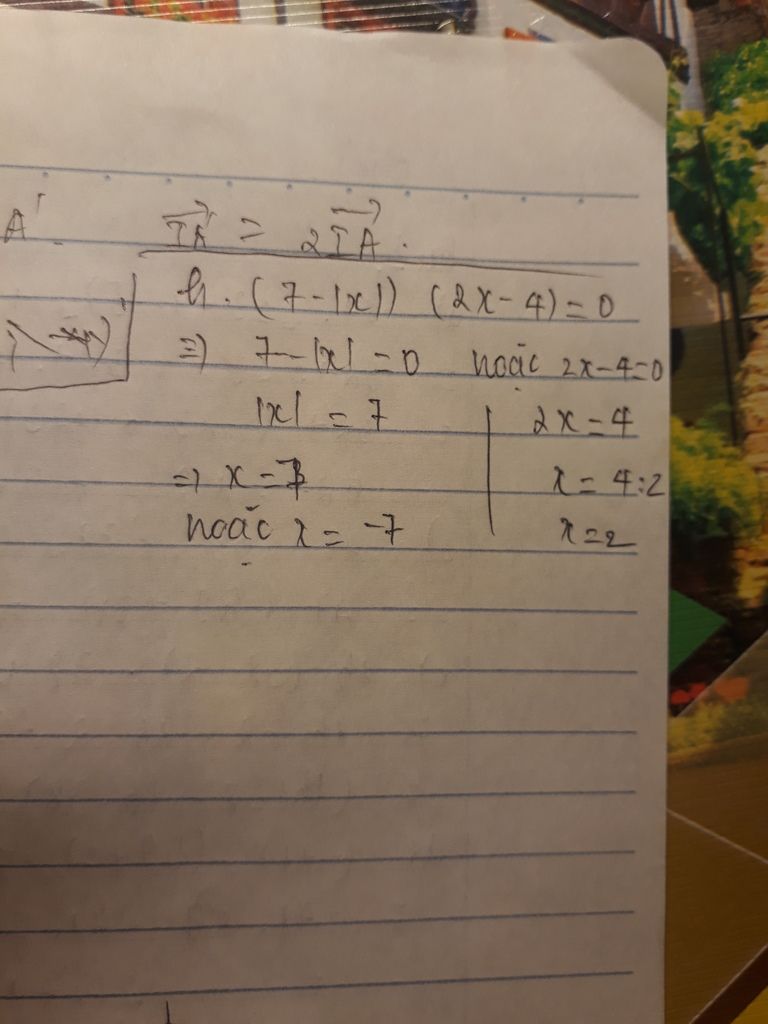 A'.
IA' = 2IA.
h. (7-|x|) (2x-4)=0
=> 7-|x|=0 hoặc 2x-4=0
|x| = 7
2x=4
=> x=7
x= 4:2
hoặc x= -7
x=2